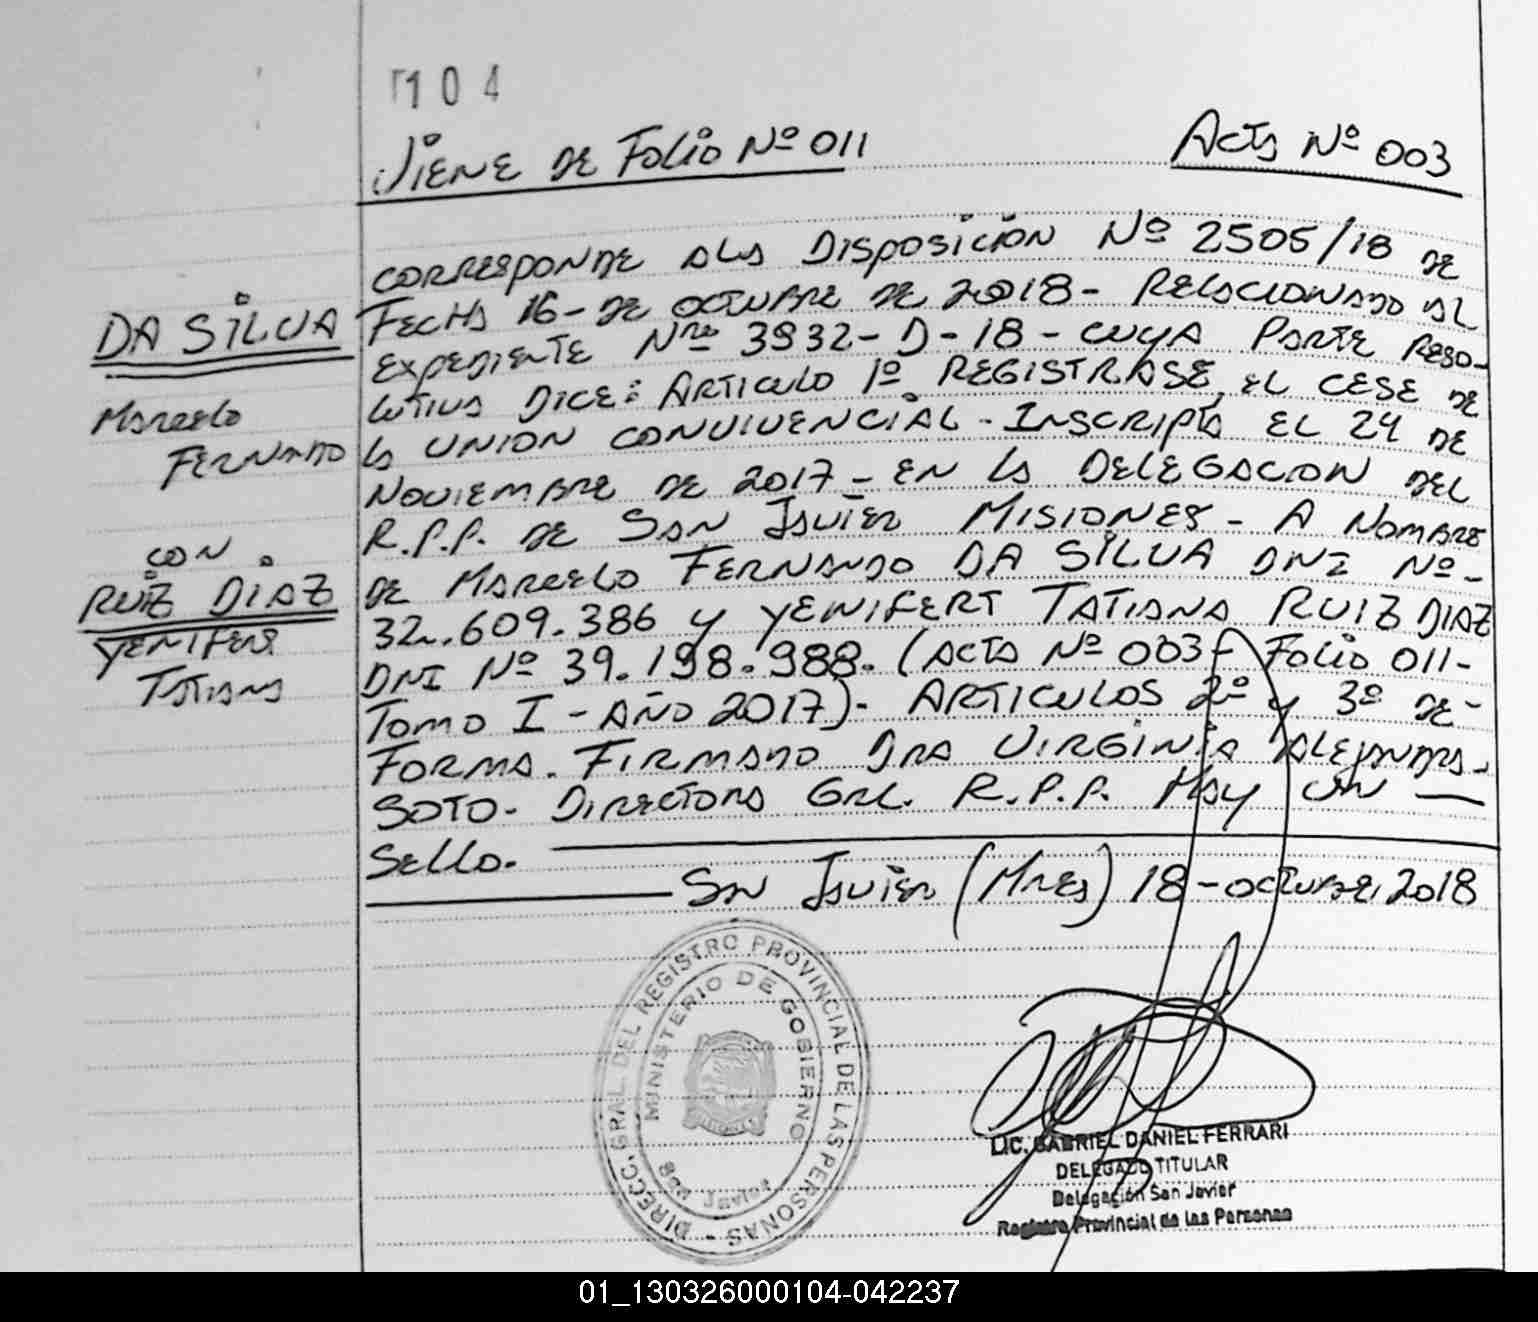 104
VIENE DE FOLIO Nº 011
ACTA Nº 003
CORRESPONDE A LA DISPOSICION Nº 2505/18 DE
FECHA 16- DE OCTUBRE DE 2018- RELACIONADO AL
EXPEDIENTE Nro 3932-D-18- CUYA PARTE RESO-
LUTIVA DICE: ARTICULO 1º REGISTRASE, EL CESE DE
LA UNION CONVIVENCIAL- INSCRIPTA EL 24 DE
NOVIEMBRE DE 2017- EN LA DELEGACION DEL
R.P.P. DE SAN JAVIER MISIONES- A NOMBRE
DE MARCELO FERNANDO DA SILVA DNI Nº-
32.609.386 y YENIFERT TATIANA RUIZ DIAZ
DNI Nº 39.198.988. (ACTA Nº 003- FOLIO 011-
TOMO I - AÑO 2017)- ARTICULOS 2º y 3º DE-
FORMA. FIRMADO DRA VIRGINIA ALEJANDRA-
SOTO- DIRECTORA GRL. R.P.P. HAY UN —
SELLO.
SAN JAVIER (MNES) 18-OCTUBRE, 2018
DA SILVA
MARCELO
FERNANDO
CON
RUIZ DIAZ
YENIFERT
TATIANA
DIRECC. GRAL. DEL REGISTRO PROVINCIAL DE LAS PERSONAS -
MINISTERIO DE GOBIERNO
San Javier
LIC. GABRIEL DANIEL FERRARI
DELEGADO TITULAR
Delegación San Javier
Registro Provincial de las Personas
01_130326000104-042237